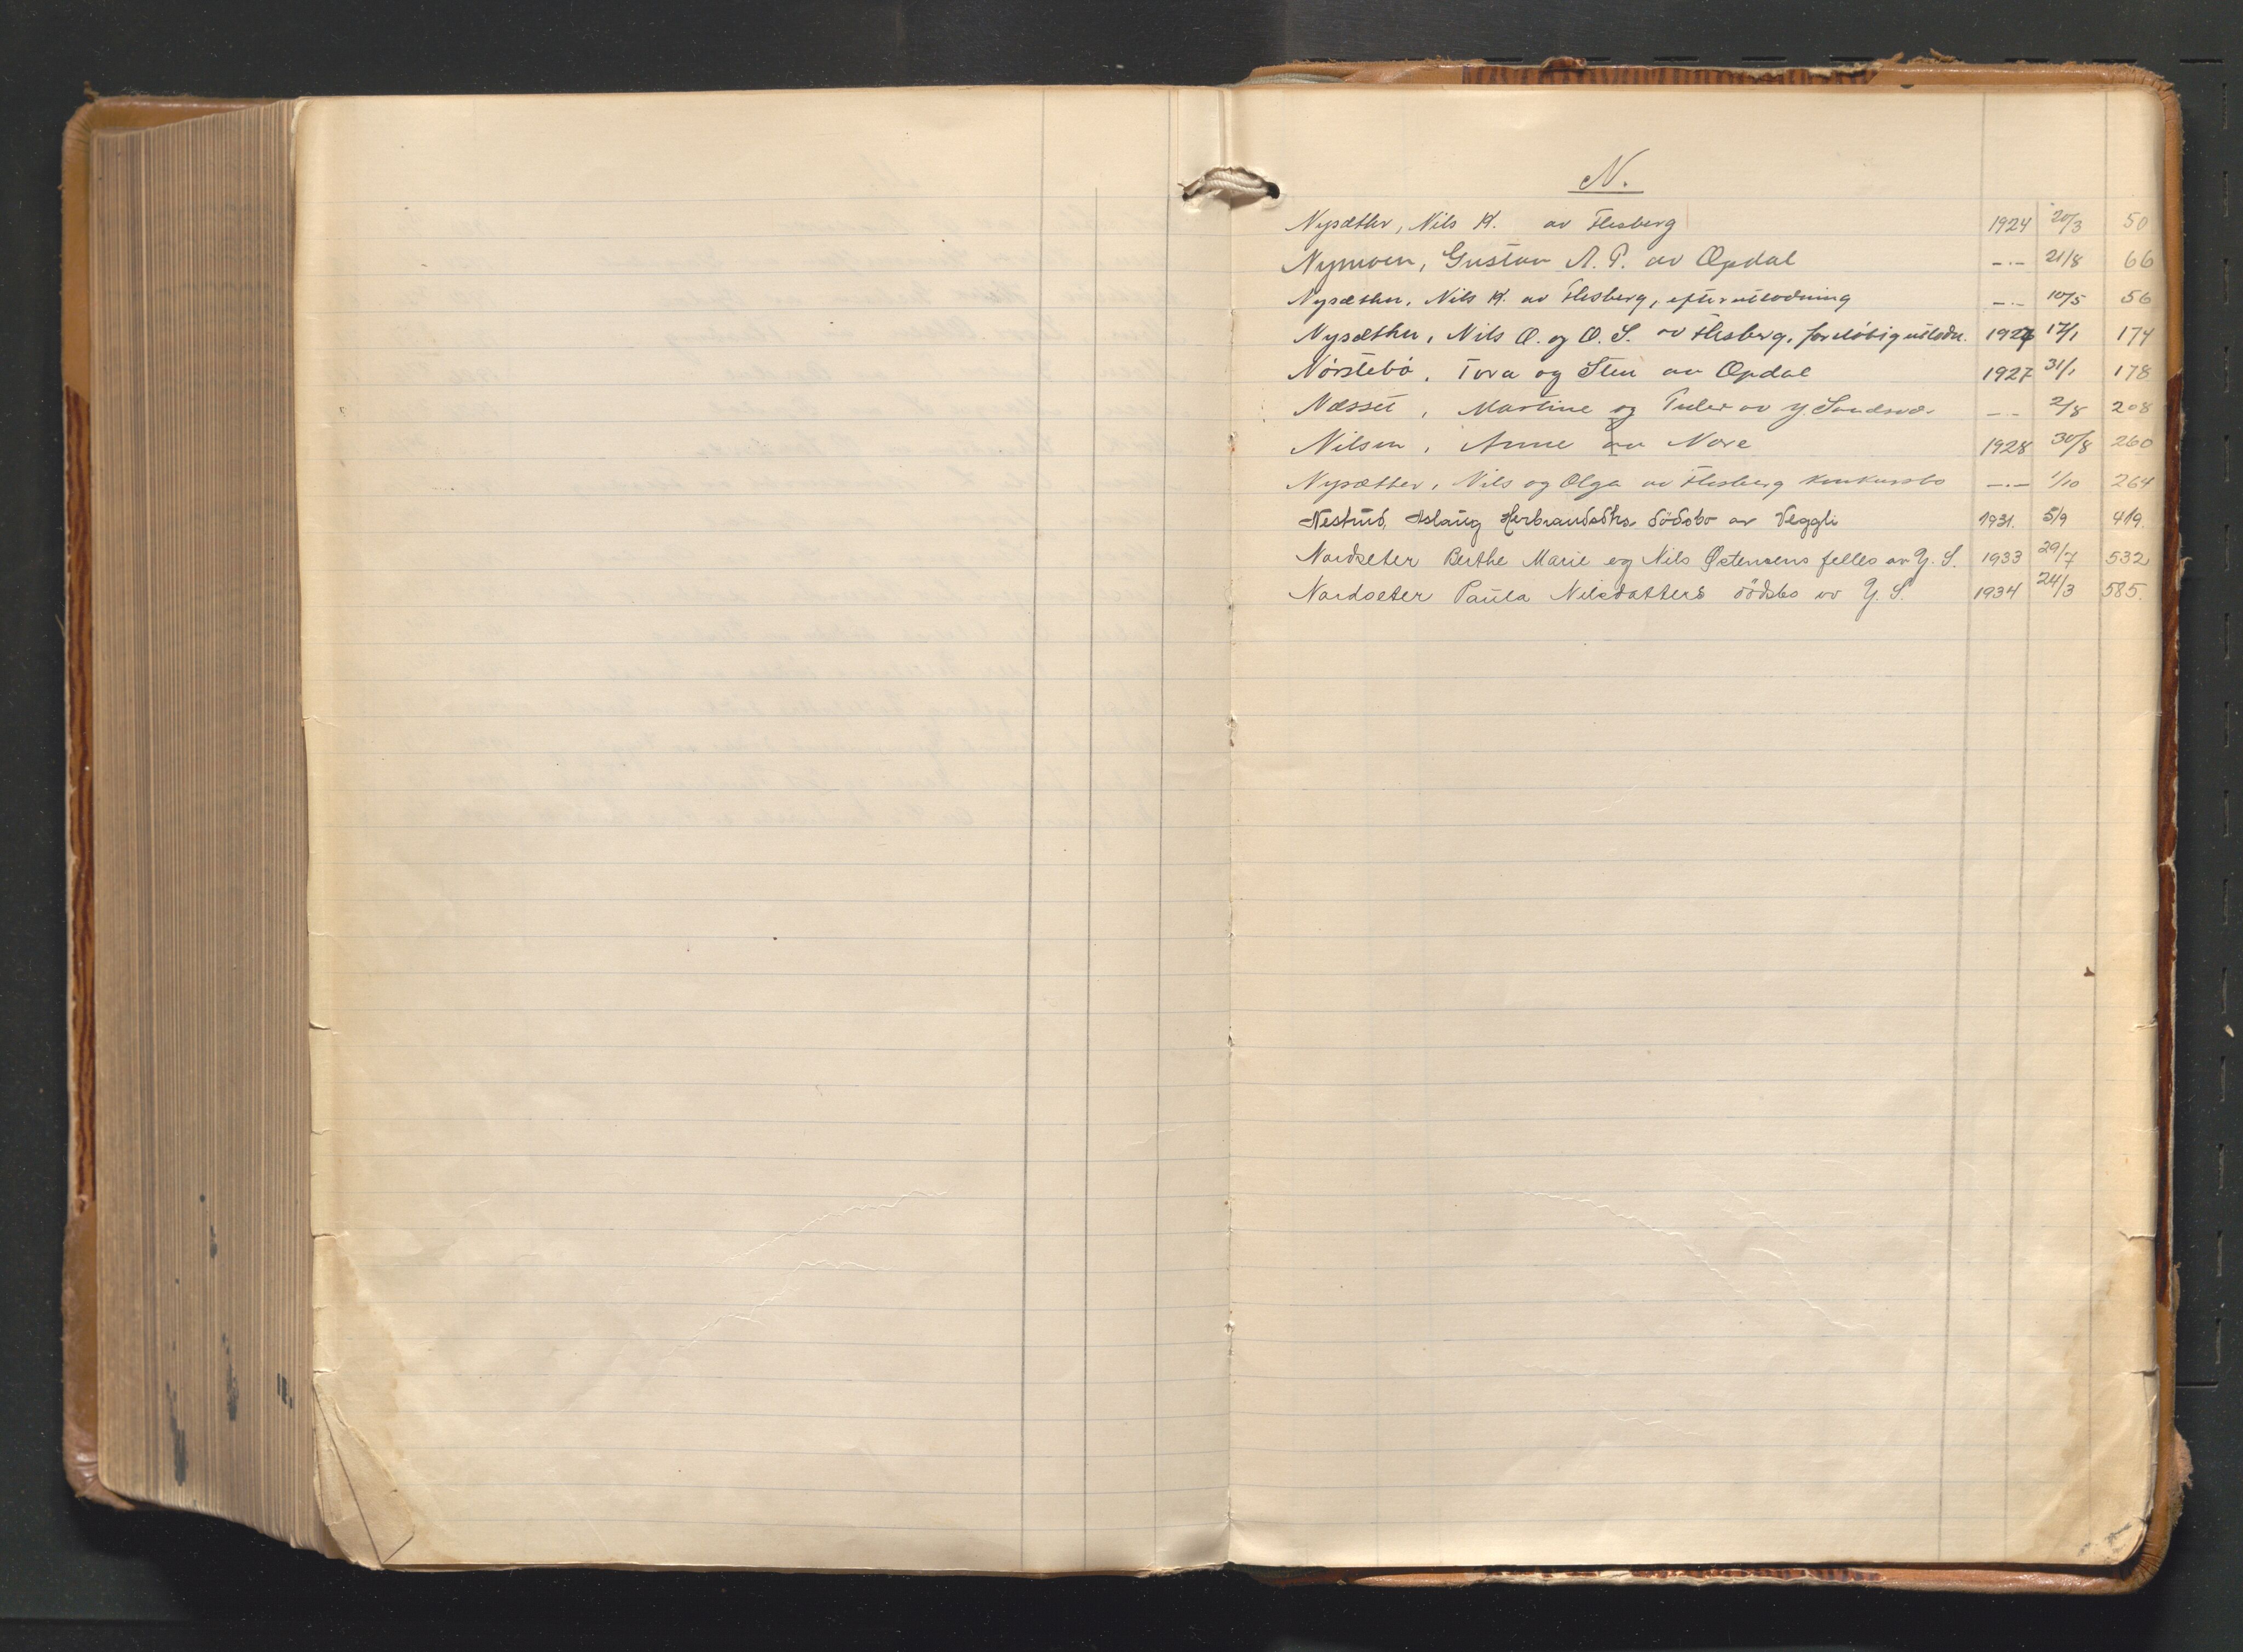 N.
Nysæther, Nils K. av Flesberg 1924 20/3 50
Nymoen, Gustav A. P. av Opdal -.- 21/8 66
Nysæther, Nils K. av Flesberg, efterutlodning -.- 10/5 56
Nysæther, Nils O. og O. S. av Flesberg, foreløbig utlodn. 1927 17/1 174
Nørstebø, Tora og Sten av Opdal 1927 31/1 178
Næsset, Martine og Peder av y. Sandsvær -.- 2/8 208
Nilsen, Anne av Nore 1928 30/8 260
Nysæther, Nils og Olga av Flesberg konkursbo -.- 1/10 264
Nestrud, Aslaug Herbrandsdtrs dødsbo av Veggli 1931. 5/9 419.
Nordseter Berthe Marie og Nils Østensens felles av Y. S. 1933 29/7 532
Nordseter Paula Nilsdatters dødsbo av Y. S. 1934 24/3 585.